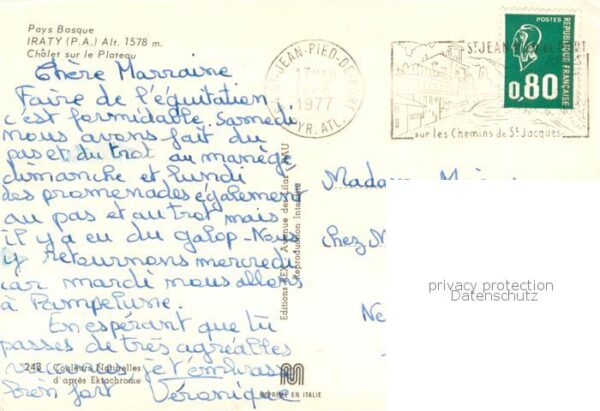 Pays Basque
IRATY (P.A.) Alt. 1578 m.
Châlet sur le Plateau
Chère Marraine
Faire de l'équitation
c'est formidable. Samedi
nous avons fait du
pas et du trot au manège
dimanche et lundi
des promenades également
au pas et au trot mais
il y a eu du galop - Nous
y retournons mercredi
car mardi nous allons
à Pampelune.
En espérant que tu
passes de très agréables
vacances, je t'embrasse
bien fort Véronique
242 Couleurs Naturelles
d'après Ektachrome
Avenue des Lilas
Reproduction Interdite
IMPRIMÉ EN ITALIE
ST-JEAN-PIED-DE-PORT
17H
1977
PYR. ATL.
ST JEAN
sur les Chemins de St Jacques
POSTES
RÉPUBLIQUE FRANÇAISE
0,80
Madame
chez M
Ne
privacy protection
Datenschutz